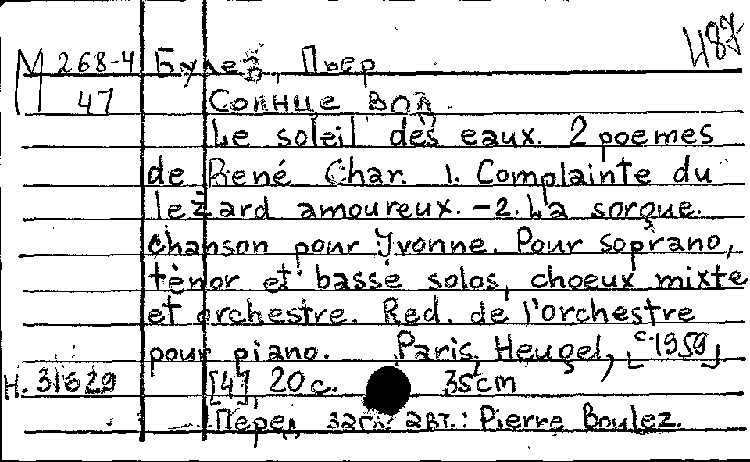 487
М 268-4 Булез, Пьер
47 Солнце вод.
Le soleil des eaux. 2 poemes
de René Char. 1. Complainte du
lezard amoureux. - 2. La sorgue.
chanson pour Yvonne. Pour soprano,
tènor et basse solos, choeux mixte
et orchestre. Red. de l'orchestre
pour piano. Paris, Heugel, [c 1959]
Н. 31629 [4], 20 с. 35cm
Перед загл. авт.: Pierre Boulez.